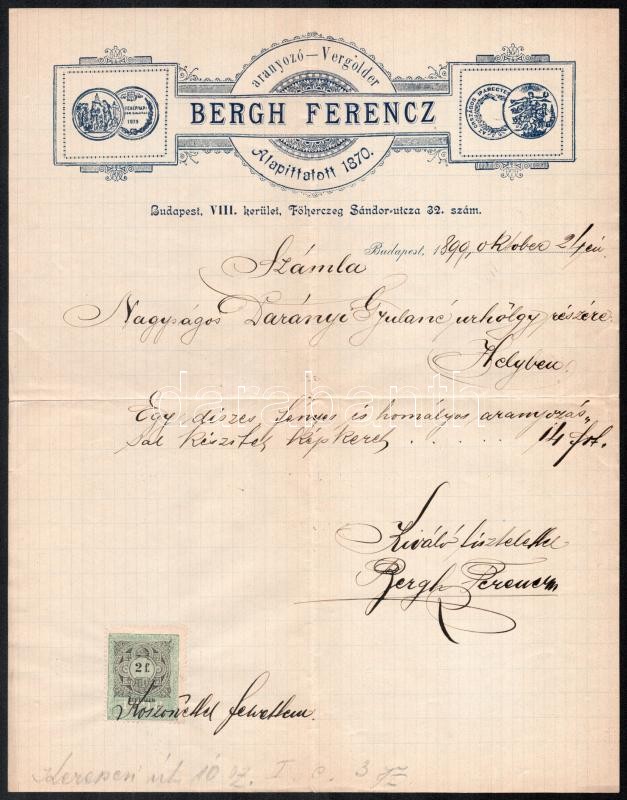 aranyozó — Vergolder
BERGH FERENCZ
Alapittatott 1870.
SZÉKESFEHÉRVÁRI
1879
ORSZÁGOS IPAREGYES
Budapest, VIII. kerület, Főherczeg Sándor-utcza 32. szám.
Budapest, 1899, oktober 24én
Számla
Nagyságos Darányi Gyuláné urhölgy részére
Helyben.
Egy diszes fényes és homályos aranyozás„
sal készitet képkeret . . . . . . 14 frt.
Kiváló tisztelettel
Bergh Ferencz
2 f.
Köszönettel felvettem.
Kerepesi út 10 sz. I. e. 3
darabanth